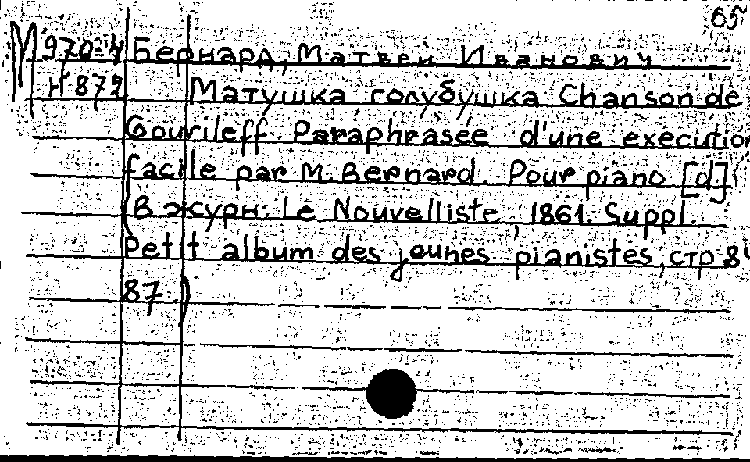 65
М 970-4 Бернард, Матвей Иванович
Н 872 Матушка голубушка Chanson de
Gourileff. Paraphrasée d'une execution
facile par M. Bernard. Pour piano [d]
(В журн: Le Nouvelliste, 1861. Suppl.
Petit album des jeunes pianistes, стр 84
87)